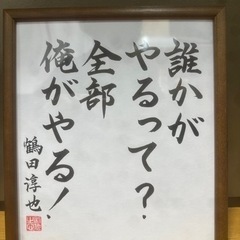 誰かが
やるって？
全部
俺がやる！
鶴田淳也